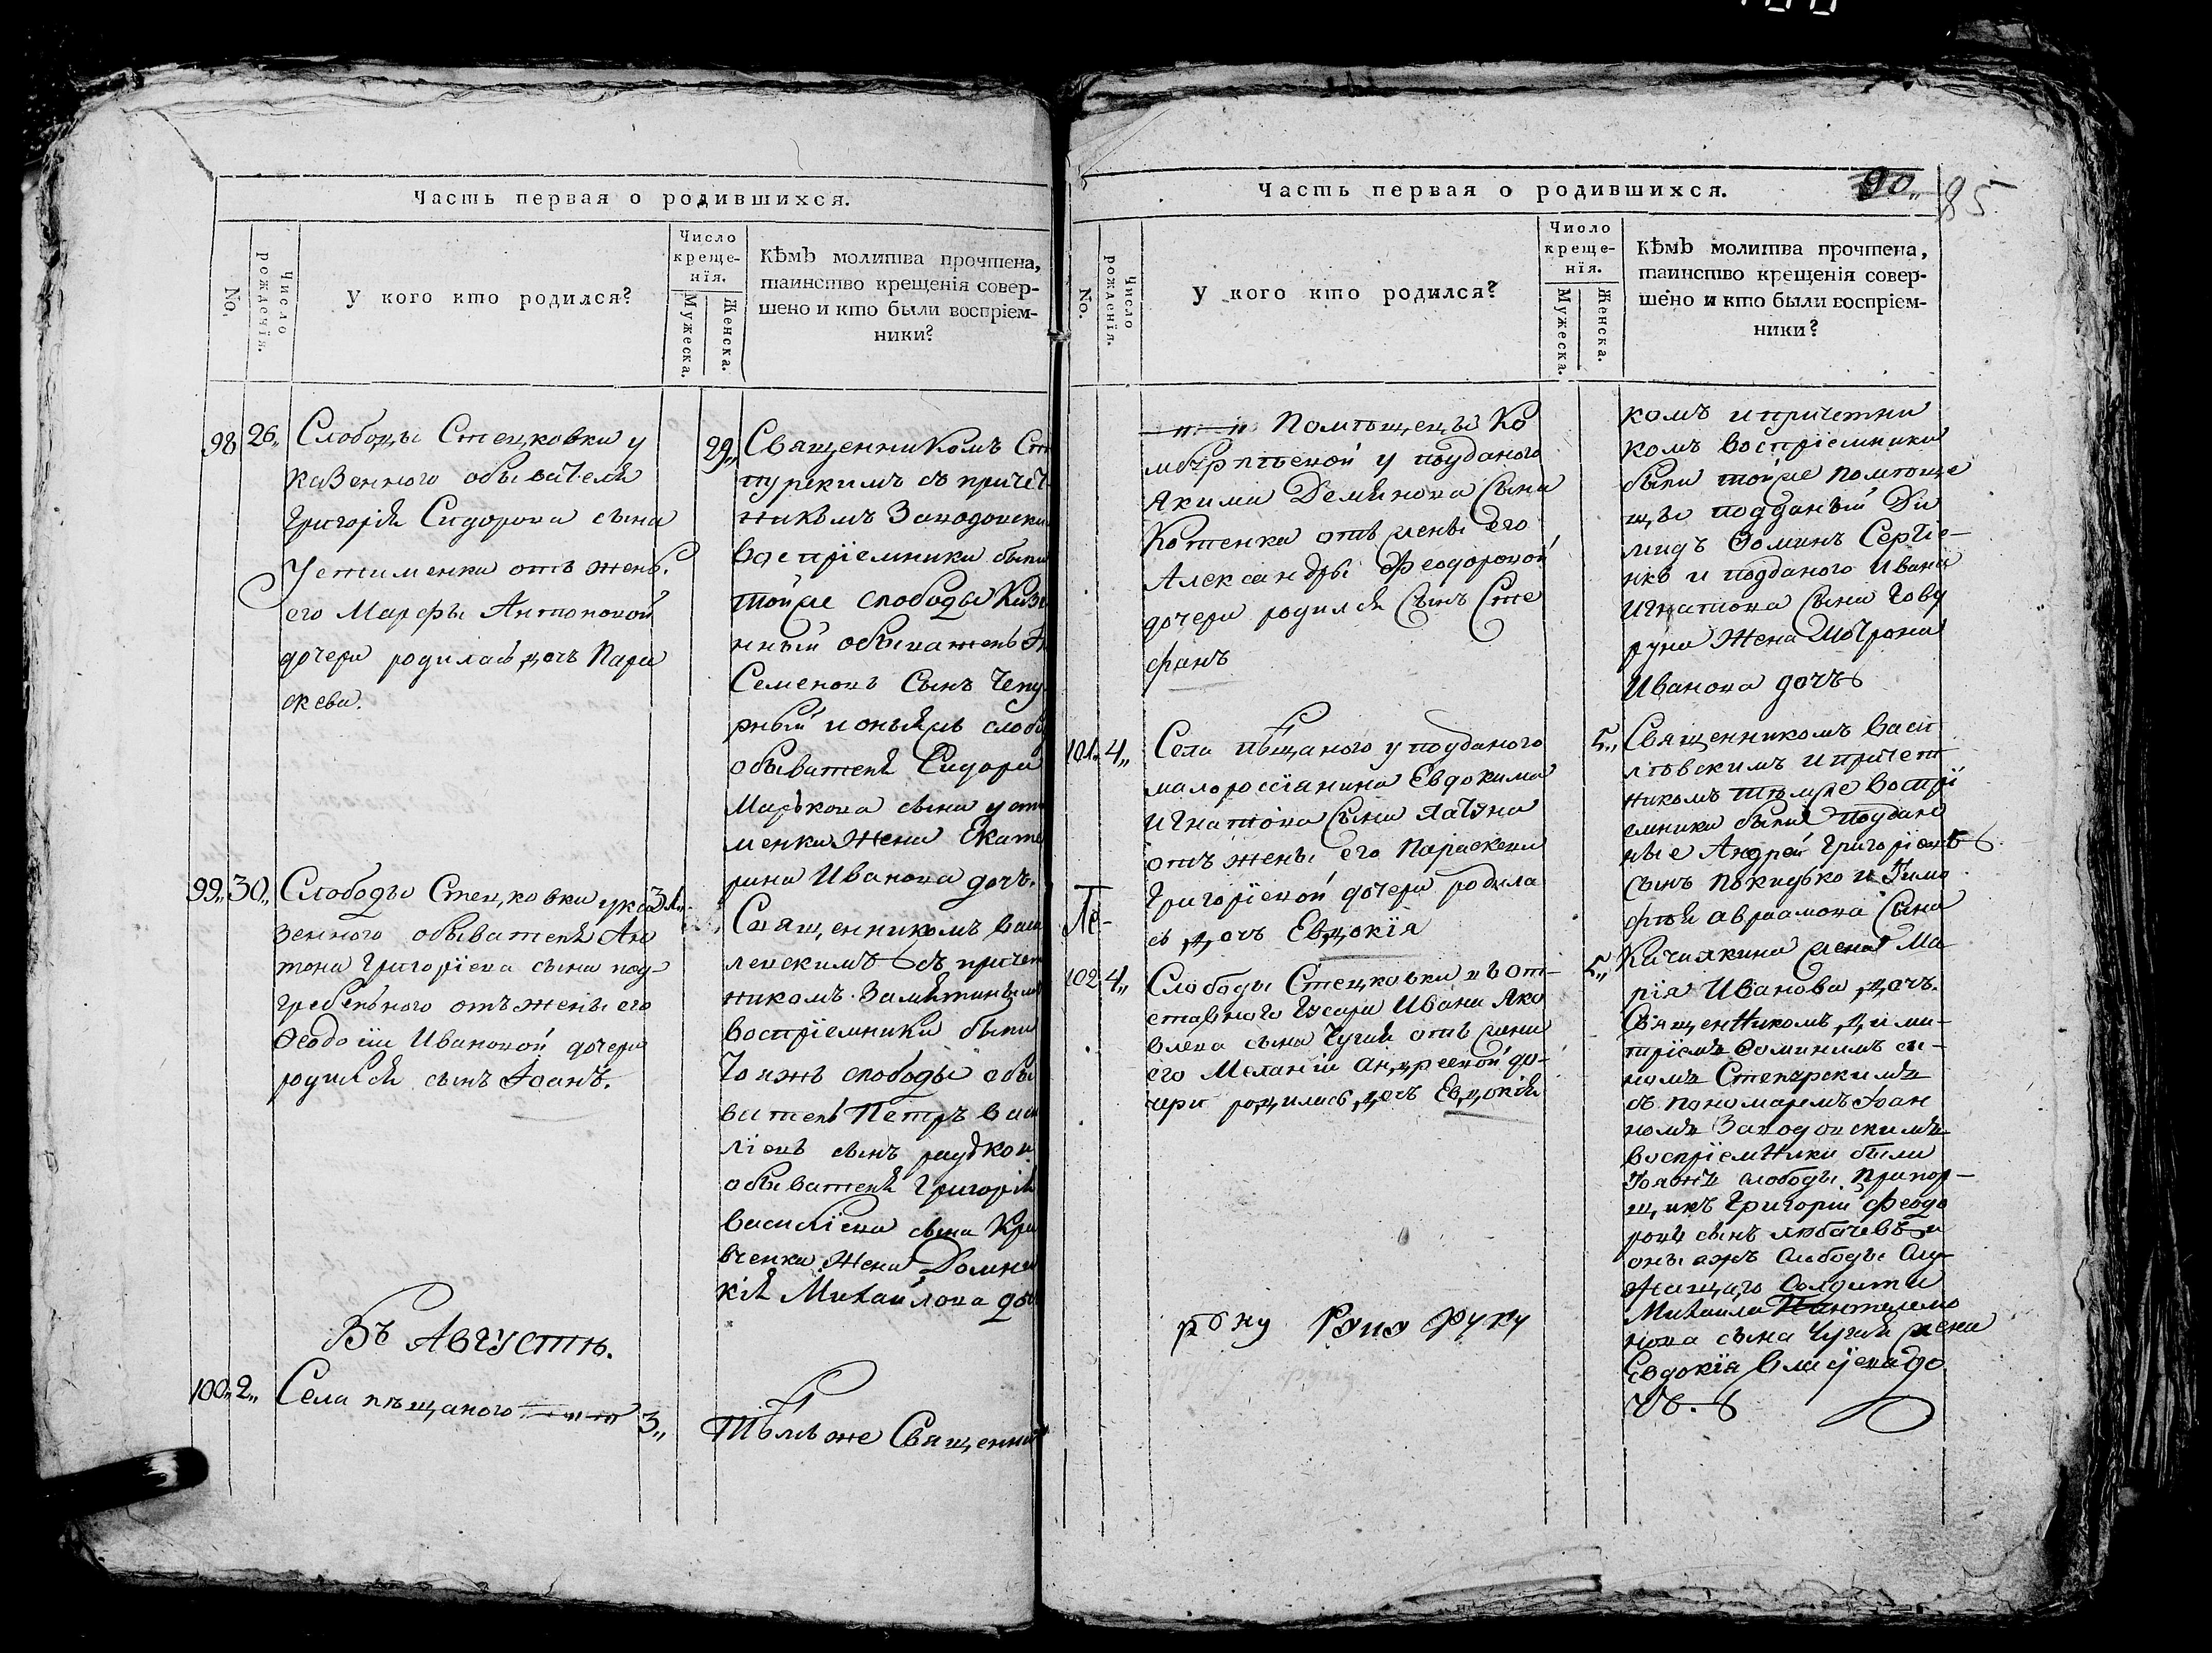 Часть первая о родившихся.
No.
Число рожденія.
У кого кто родился?
Число крещенія.
Мужеска.
Женска.
Кѣмъ молитва прочтена,
таинство крещенія совер-
шено и кто были воспріем-
ники?
98 26„
Слободы Стецковки у
казенного обывателя
Григорія Сидорова сына
Устименка отъ жены
его Марфы Антоновой
дочери родилась дочь Пара
скева.
29„
Священникомъ
съ причет
никомъ
воспріемники были
тойже слободы Казе
нный обыватель
Семеновъ Сынъ Чепу
рный и оныяжъ слобо
обывателя Сидора
Маркова сына усти
менка Жена Екате
рина Иванова дочь.
99„ 30„
Слободы Стецковки у ка
зенного обывателя Ан
тона Григоріева сына под-
гребельного отъ жены его
Ѳеодосіи Ивановой дочери
родился сынъ Іоанъ.
31„
Священникомъ Васи
левскимъ съ причет
никомъ
воспріемники были
Тояжъ слободы обы
ватель Петръ Васи
ліевъ сынъ
обывателя Григорія
Василіева сына Кра
вченка Жена Домни
кія Михайлова доч
Въ Августѣ.
100„ 2„
Села пѣщаного
3„
Тѣмъ же Священни
Часть первая о родившихся.
90„ 85
No.
Число рожденія.
У кого кто родился?
Число крещенія.
Мужеска.
Женска.
Кѣмъ молитва прочтена,
таинство крещенія совер-
шено и кто были воспріем-
ники?
Помѣщецы Ко
у подданого
Якима Деминова Сына
Котенка отъ жены его
Александры Феодоровой
дочери родился Сынъ Сте
фанъ
комъ и причетни
комъ воспріемники
были тойже помѣще
щы подданый Ди
мидъ Ѳоминъ Сергіе-
нко и подданого Ивана
Игнатова Сына Гову
руна Жена Мотрона
Иванова дочь
101„ 4„
Села пѣщаного у подданого
малоросіянина Евдокима
Игнатова Сына
отъ жены его Параскевы
Григоріевой дочери родила
сь дочь Евдокія
5„
Священникомъ Васи
лѣвскимъ и причет
никомъ тѣмже воспрі
емники были поддан
ные Андрей Григоріевъ
Сынъ Покидько и Тимо
фѣя Авраамова Сына
жена Ма
рія Иванова дочь.
102 4„
Слободы Стецковки у от-
ставного Гусара Ивана Яко
влева сына Чугая отъ жены
его Меланіи Андреевой до-
чери родилась дочь Евдокія
5„
Священникомъ Дими-
тріемъ Ѳоминимъ сы-
номъ
съ пономаремъ Іоан
номъ
воспріемники были
Тояжъ слободы Прапор-
щикъ Григорій Феодо
ровъ сынъ Любачевъ и
оныяжъ слободы Слу-
жащаго Солдата
Михаила Пантелемо
нова сына Чугая жена
Евдокія до
чь.
руку